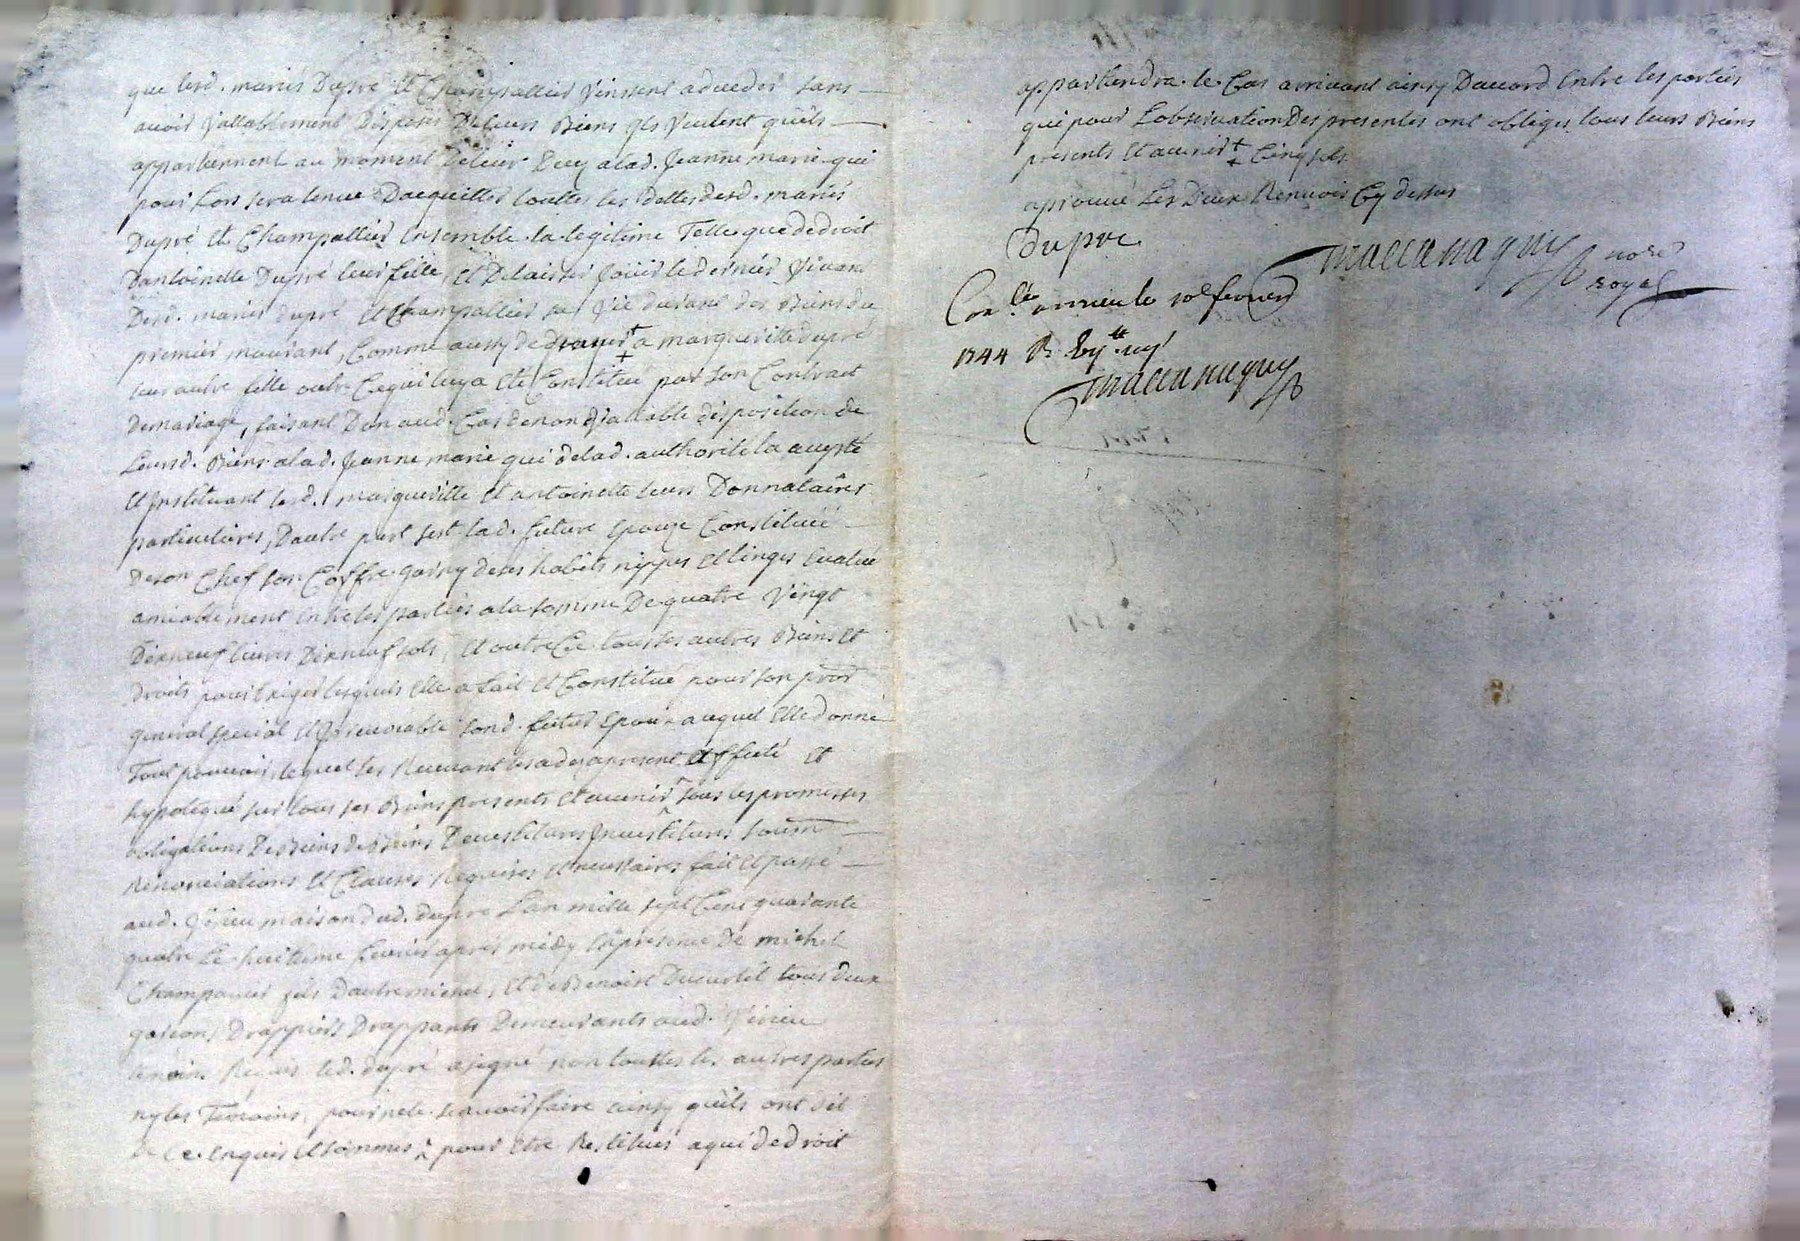 que lesd. mariés Dupré et Champallier vinssent a deceder sans
avoir vallablement Disposés De leurs Biens ils veulent quils
appartiennent au moment De leur Decez a lad. Jeanne marie qui
pour Lors sera tenue D'acquitter touttes les Dettes desd. mariés
Dupré et Champallier Ensemble la legitime Telle que de droit
D'antoinette Dupré leur fille, et De laisser Joüir le dernier vivant
Desd. mariés dupré et Champallier sa vie durant des Biens du
premier mourant, Comme aussy de a margueritte dupré
leur autre fille outre Ce qui luy a eté Constitué par son Contract
De mariage, faisant Don aud. Cas de non vallable disposition de
Leursd. Biens a lad. Jeanne marie qui de lad. authorité la accepté
et Instituant lesd. margueritte et antoinette leurs Donnataires
particulieres, D'autre part sest lad. future Epouze Constituée
De son Chef son Coffre garny de ses habits nippes et linges Evalué
amiablement entre les parties a la somme De quatre vingt
Dixneuf livres Dixneuf sols, et outre Ce tous ses autres Biens et
Droits pour Exiger lesquels elle a fait et Constitué pour son procr
general special et Irrevocable sond. futur Epoux auquel elle donne
Tout pouvoir, lequel les Recevant les a des apresent affecté et
hypotequé sur tous ses Biens presents et avenir sous les promesses
obligations De Biens Devestitures Investitures soumons
Renonciations et Clauses Requises et necessaires fait et passé
aud. maison dud. dupré L'an mille sept Cent quarante
quatre Le huitieme fevrier après midy En presence De michel
Champallier fils D'autre michel, et de Benoist Ducurtil tous deux
garçons Drappiers Drappants Demeurants aud.
temoins Requis led. dupré a signé non touttes les autres parties
ny les Temoins, pour ne le scavoir faire ainsy quils ont dit
de Ce Enquis et sommés pour etre Restitués a qui de droit
appartiendra le Cas arrivant ainsy D'accord Entre les parties
qui pour L'observation Des presentes ont obligés tous leurs Biens
presents et avenir Cinq sols
aprouvé Les Deux Renvois Cy dessus
Dupré
nore
royal
Conlé le 10e fevrier
1744 R.